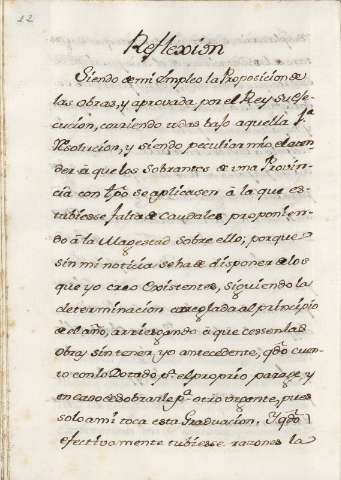 12
Reflexion
Siendo de mi Empleo la Proposicion de
las Obras, y aprovada por el Rey su Ese-
cucion, corriendo todas bajo aquella Rl.
Resolucion, y siendo peculiar mio el aten
der à que los Sobrantes de una Provin-
cia con tpo. se aplicasen à la que es-
tubiesse falta de Caudales proponien-
do à la Magestad sobre ello; porque
sin mi noticia se ha de disponer de los
que yo creo Existentes, siguiendo la
determinacion arreglada al principio
de el año, arriesgando à que cessen las
obras, sin tener yo antecedente, qdo cuen-
to con lo Dotado pa. el proprio parage, y
en caso de sobrarle pa. otro urgente, pues
solo ami toca esta Graduacion. Y qdo
efectivamente tubiesse razones la